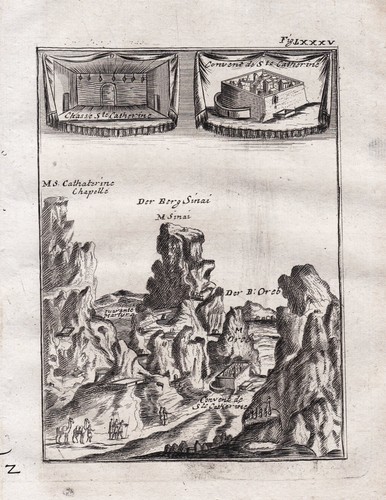 Fig. LXXXV
Chasse Ste Catherine
Convene de Ste Catherine
M S. Cathaterine
Chapelle
Der Berg Sinai
M Sinai
Der B: Oreb
Quarante
Martirs
M
Oreb
Convene de
Ste Catherine
Z